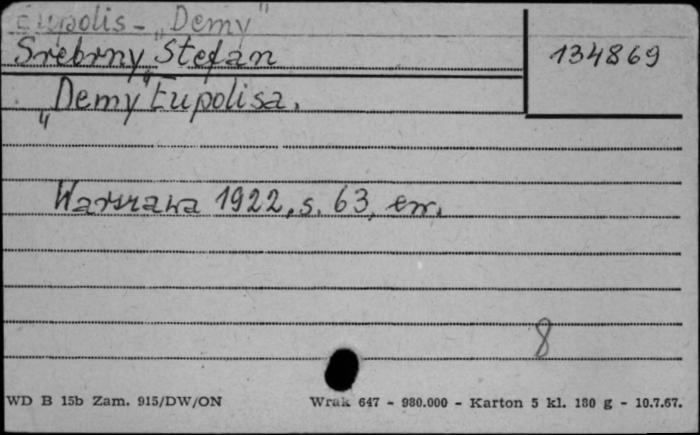 Eupolis - „Demy"
Srebrny Stefan
134869
„Demy" Eupolisa.
Warszawa 1922, s. 63,
8
WD B 15b Zam. 915/DW/ON
Wrak 647 - 980.000 - Karton 5 kl. 180 g - 10.7.67.